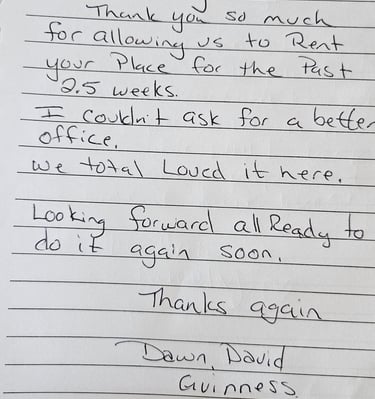 Thank you so much
for allowing us to Rent
your Place for the Past
2.5 weeks.
I couldn't ask for a better
office.
we total Loved it here.
Looking forward all Ready to
do it again soon.
Thanks again
Dawn, David
Guinness.